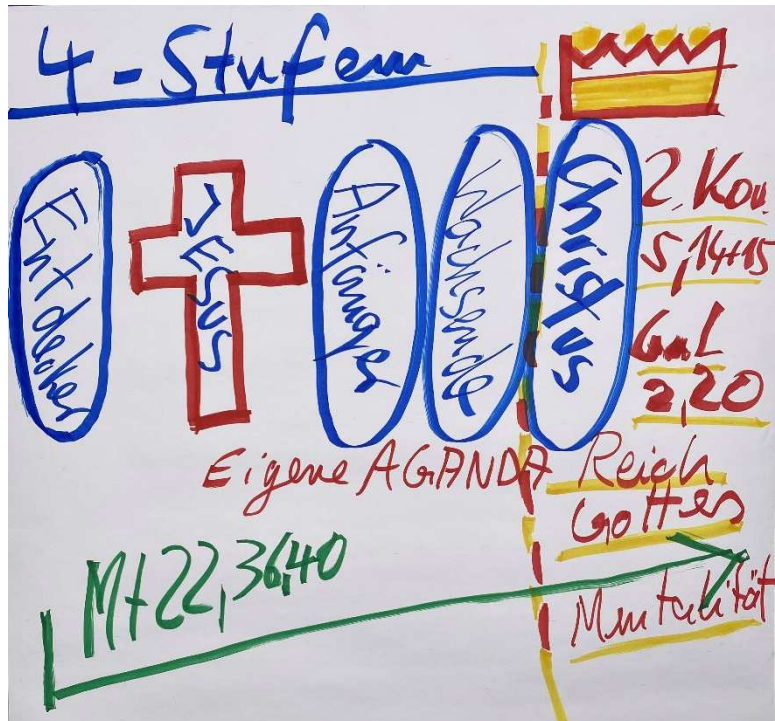 4-Stufen
Entdecker
JESUS
Anfänger
Wachsende
Christus
2. Kor.
5,14+15
Gal
2,20
Eigene AGANDA
Reich
Gottes
Mt 22,36,40
Mentalität